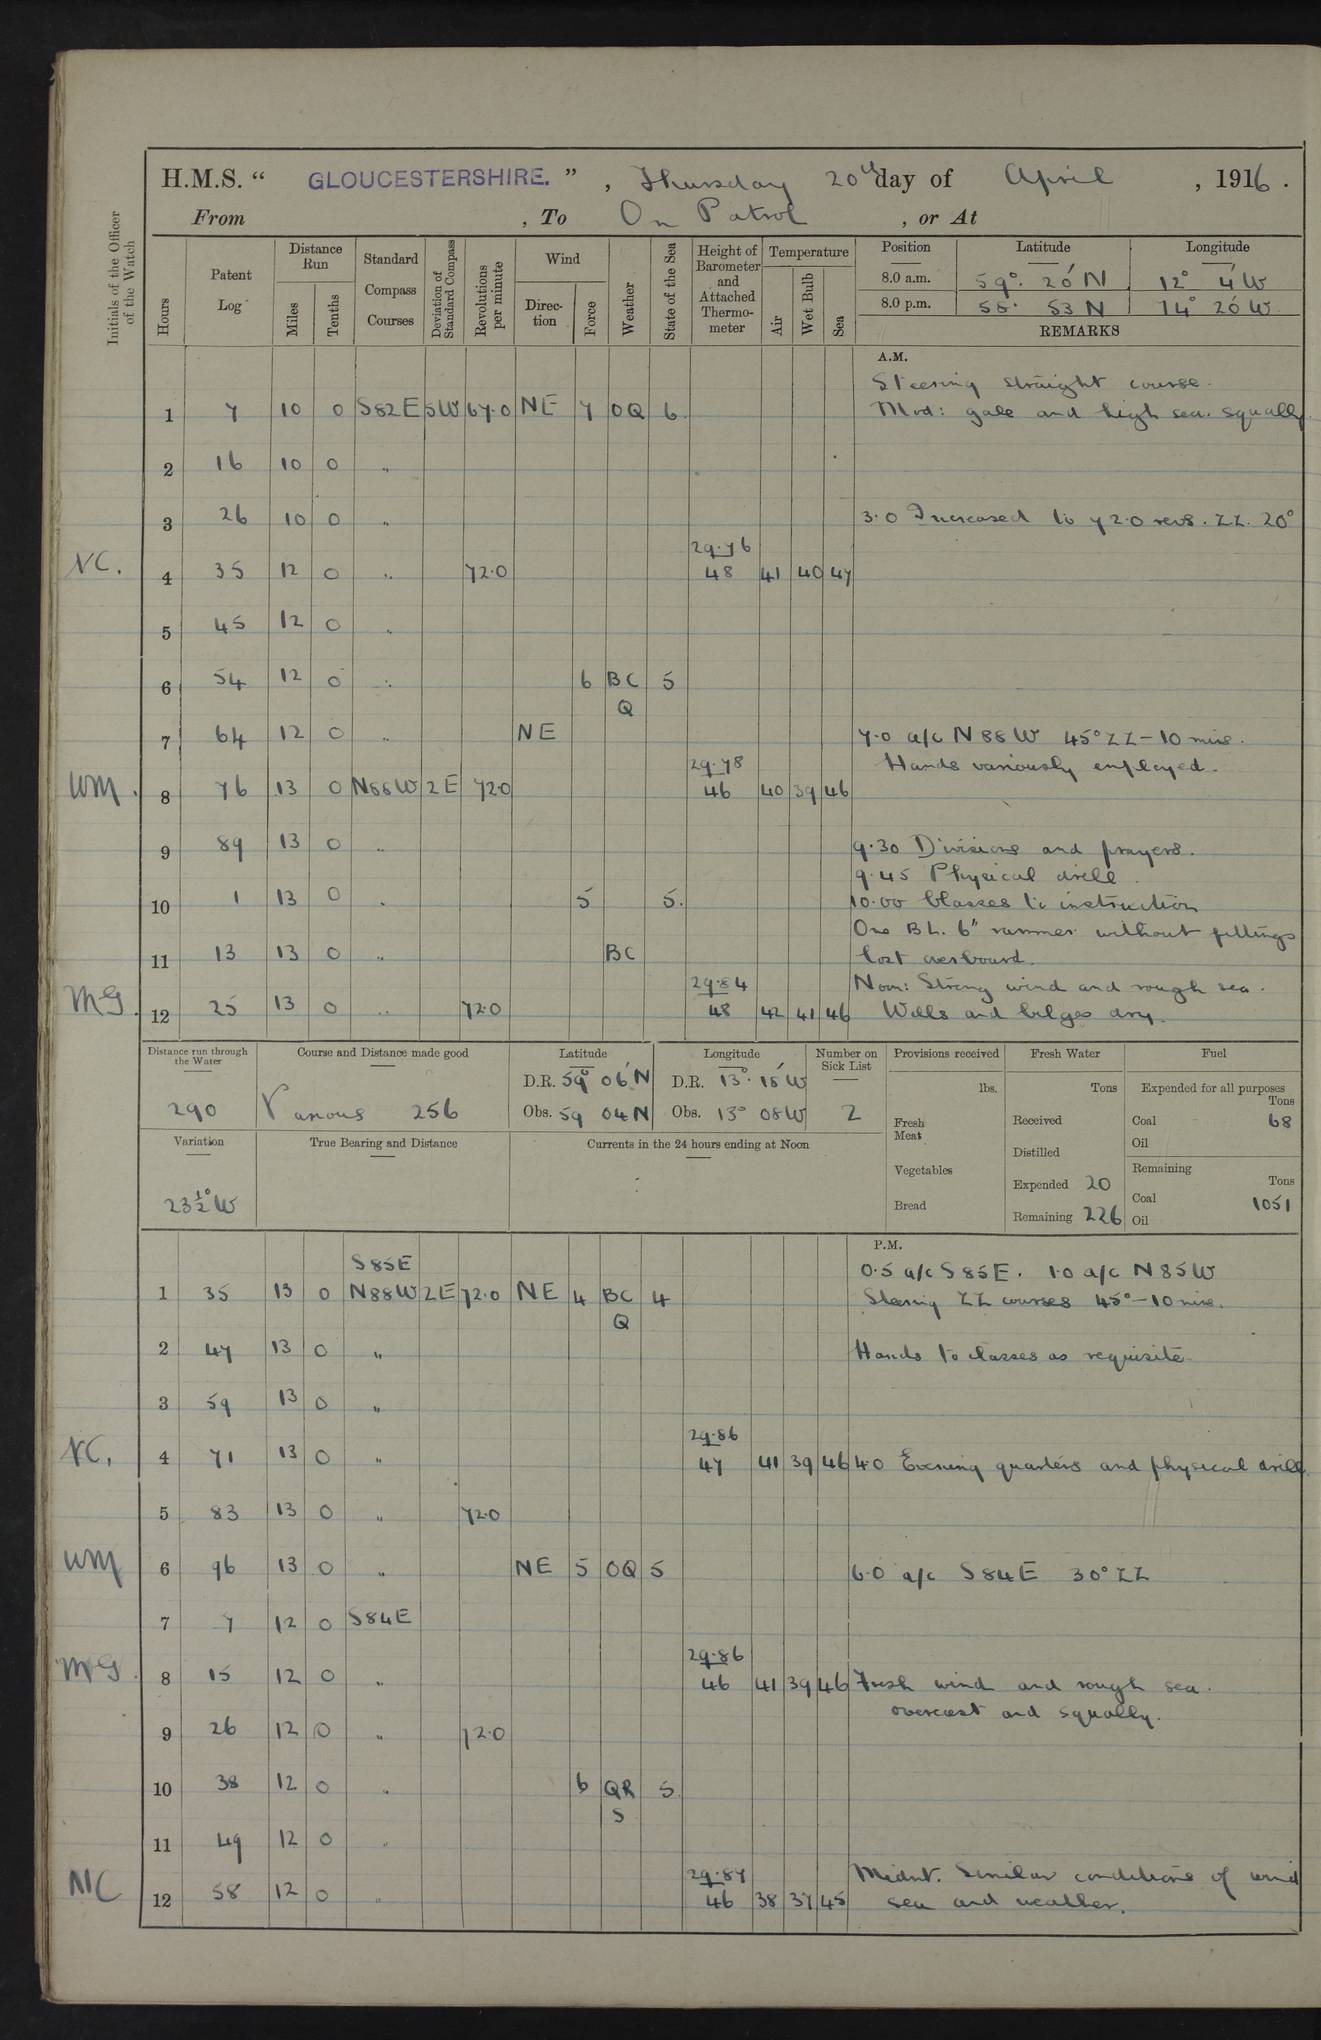 H.M.S. “ GLOUCESTERSHIRE. ” , Thursday 20th day of April , 1916 .
From , To On Patrol , or At
Initials of the Officer of the Watch
Hours Patent Log Distance Run Miles Tenths Standard Compass Courses Deviation of Standard Compass Revolutions per minute Wind Direc-tion Force Weather State of the Sea Height of Barometer and Attached Thermo-meter Temperature Air Wet Bulb Sea Position Latitude Longitude
8.0 a.m. 59° 20' N 12° 4' W
8.0 p.m. 58° 53 N 14° 20' W
REMARKS
A.M.
Steering straight course.
1 7 10 0 S82E 5W 67.0 NE 7 OQ 6 Mod: gale and high sea. squally.
2 16 10 0 "
3 26 10 0 " 3.0 Increased to 72.0 revs. ZZ. 20°
29.76
NC. 4 35 12 0 " 72.0 48 41 40 47
5 45 12 0 "
6 54 12 0 " 6 BC 5
Q
7 64 12 0 " NE 7.0 a/c N88W 45° ZZ-10 mins.
29.78 Hands variously employed.
WM. 8 76 13 0 N88W 2E 72.0 46 40 39 46
9 89 13 0 " 9.30 Divisions and prayers.
9.45 Physical drill.
10 1 13 0 " 5 5. 10.00 Classes to instruction
One B.L. 6" rammer without fittings
11 13 13 0 " BC lost overboard.
29.84 Noon: Strong wind and rough sea.
MG. 12 25 13 0 " 72.0 48 42 41 46 Wells and bilges dry.
Distance run through the Water Course and Distance made good Latitude Longitude Number on Sick List Provisions received Fresh Water Fuel
290 Various 256
D.R. 59° 06' N D.R. 13° 15' W
Obs. 59 04 N Obs. 13° 08 W 2
lbs. Tons Expended for all purposes Tons
Fresh Meat Received Coal 68
Oil
Variation True Bearing and Distance Currents in the 24 hours ending at Noon
Distilled Remaining Tons
Vegetables Expended 20 Coal 1051
23½° W
Bread Remaining 226 Oil
P.M.
S85E 0.5 a/c S85E. 1.0 a/c N85W
1 35 13 0 N88W 2E 72.0 NE 4 BC 4 Steering ZZ courses 45°-10 mins.
Q
2 47 13 0 " Hands to classes as requisite
3 59 13 0 "
29.86
NC. 4 71 13 0 " 47 41 39 46 4.0 Evening quarters and physical drill.
5 83 13 0 " 72.0
WM 6 96 13 0 " NE 5 OQ 5 6.0 a/c S84E 30° ZZ
7 7 12 0 S84E
29.86
MG. 8 15 12 0 " 46 41 39 46 Fresh wind and rough sea.
overcast and squally.
9 26 12 0 " 72.0
10 38 12 0 " 6 QR 5
S
11 49 12 0 "
29.87 Midnt. Similar conditions of wind
NC 12 58 12 0 " 46 38 37 45 sea and weather.